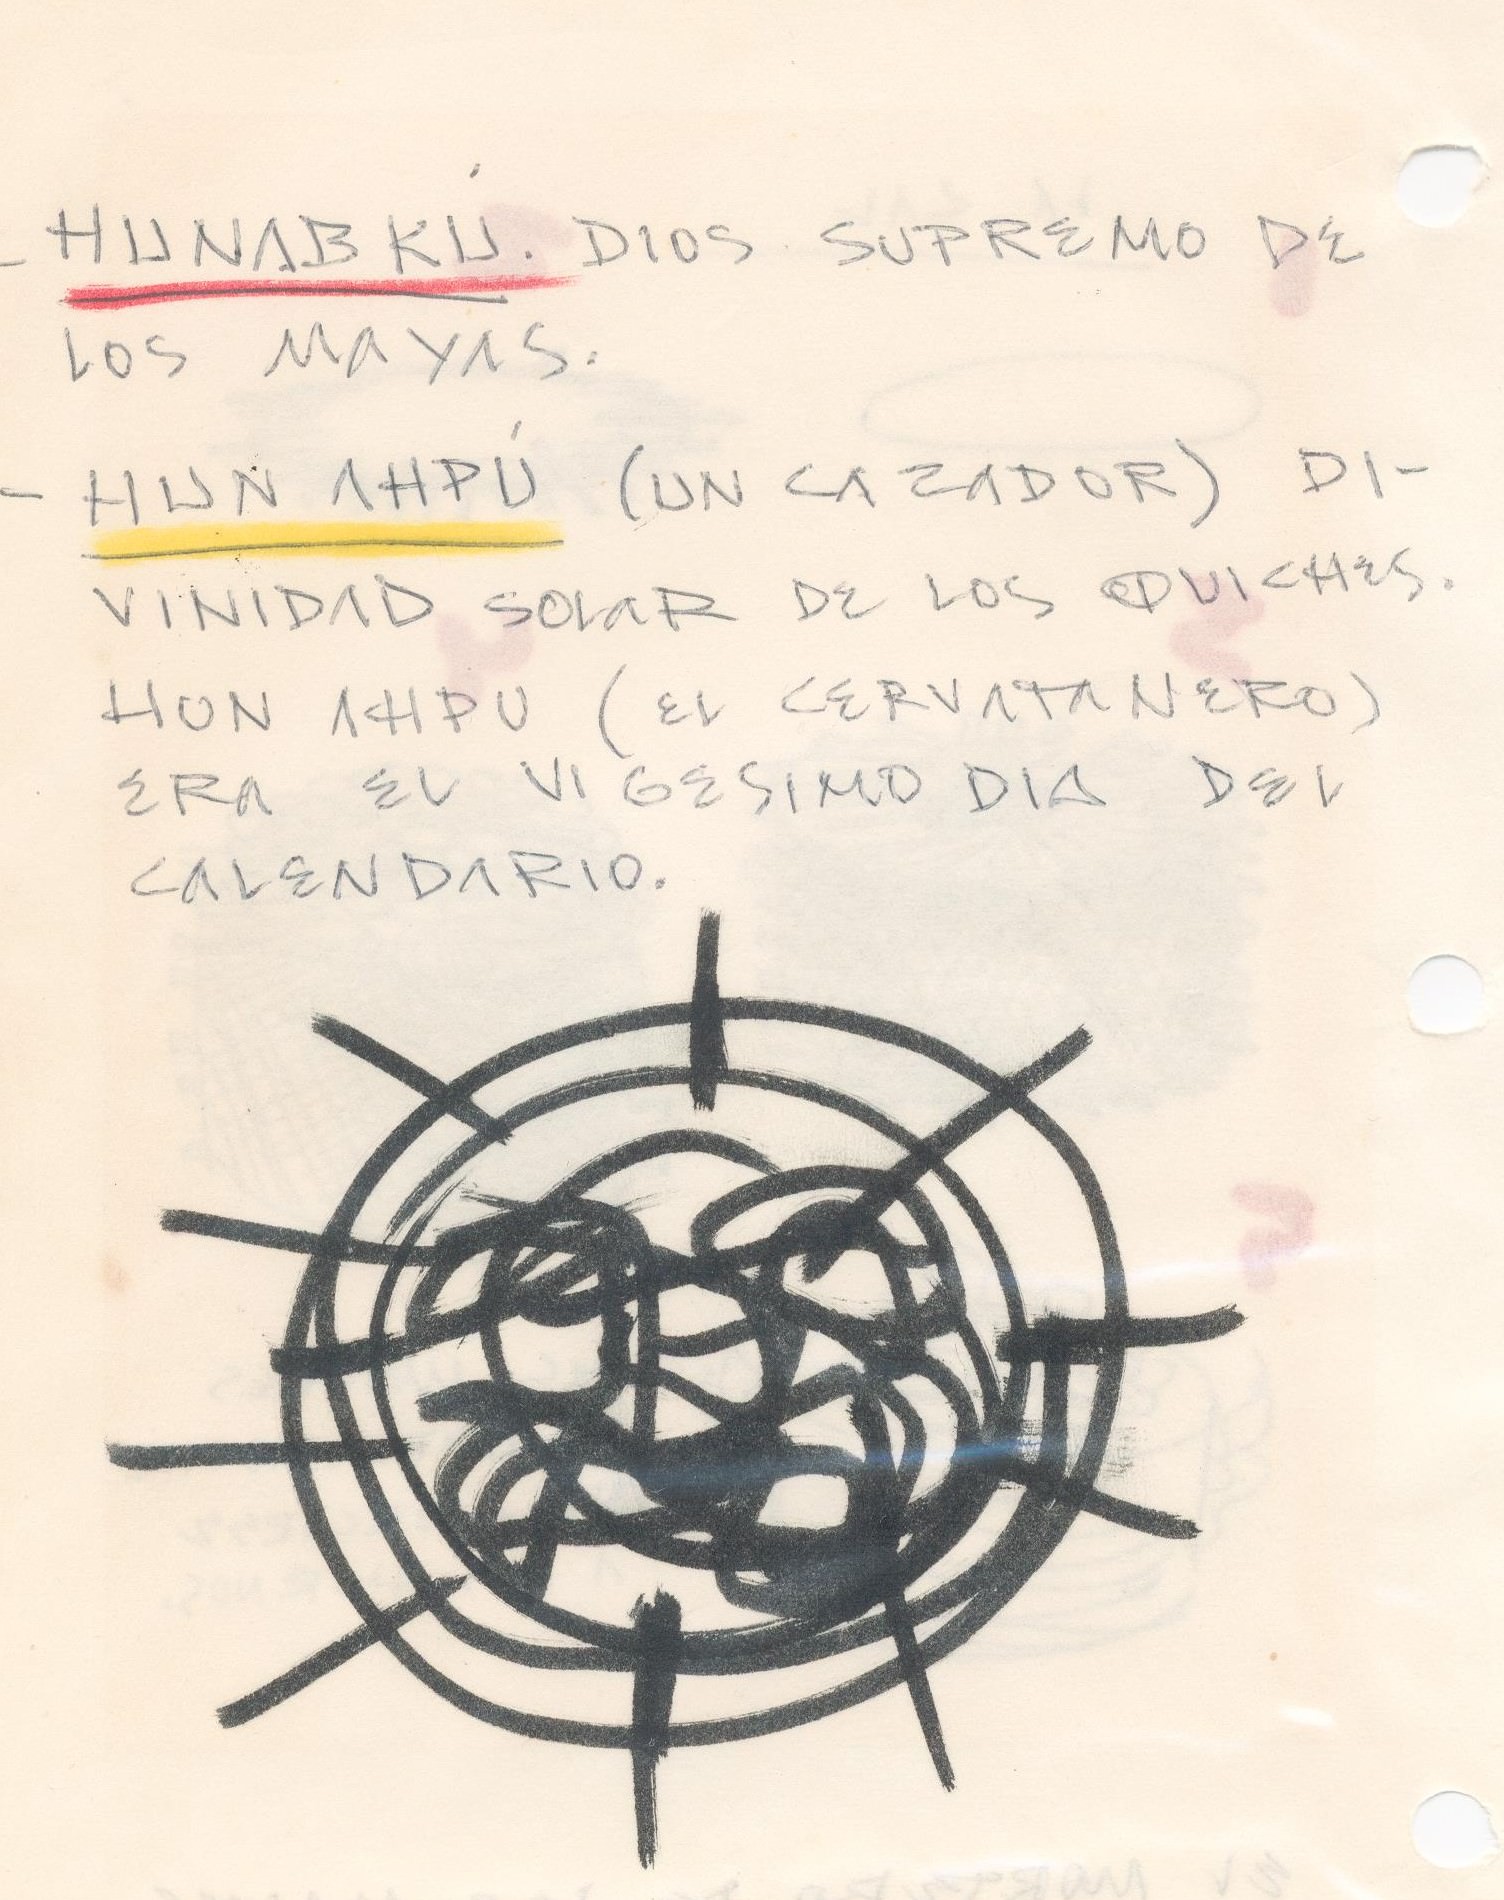 - HUNAB KÚ. DIOS SUPREMO DE
LOS MAYAS.
- HUN AHPÚ (UN CAZADOR) DI-
VINIDAD SOLAR DE LOS QUICHES.
HUN AHPU (EL CERVATANERO)
ERA EL VIGESIMO DIA DEL
CALENDARIO.